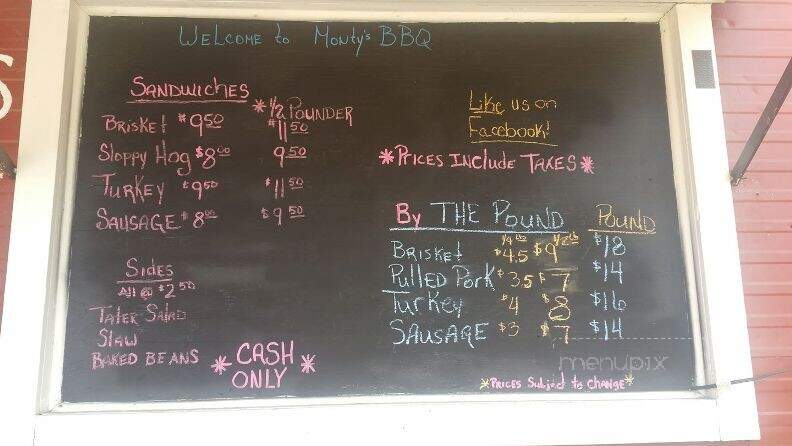 Welcome to Monty's BBQ
Sandwiches
*1/2 Pounder
Brisket $9.50 $11.50
Sloppy Hog $8.00 9.50
Turkey $9.50 $11.50
Sausage $8.00 $9.50
Sides
All @ $2.50
Tater Salad
Slaw
Baked Beans
*CASH ONLY*
Like us on
Facebook!
*Prices Include Taxes*
By THE Pound Pound
1/4 lb 1/2 lb
Brisket $4.5 $9 $18
Pulled Pork $3.5 $7 $14
Turkey $4 $8 $16
Sausage $3 $7 $14
menupix
*Prices Subject to change*